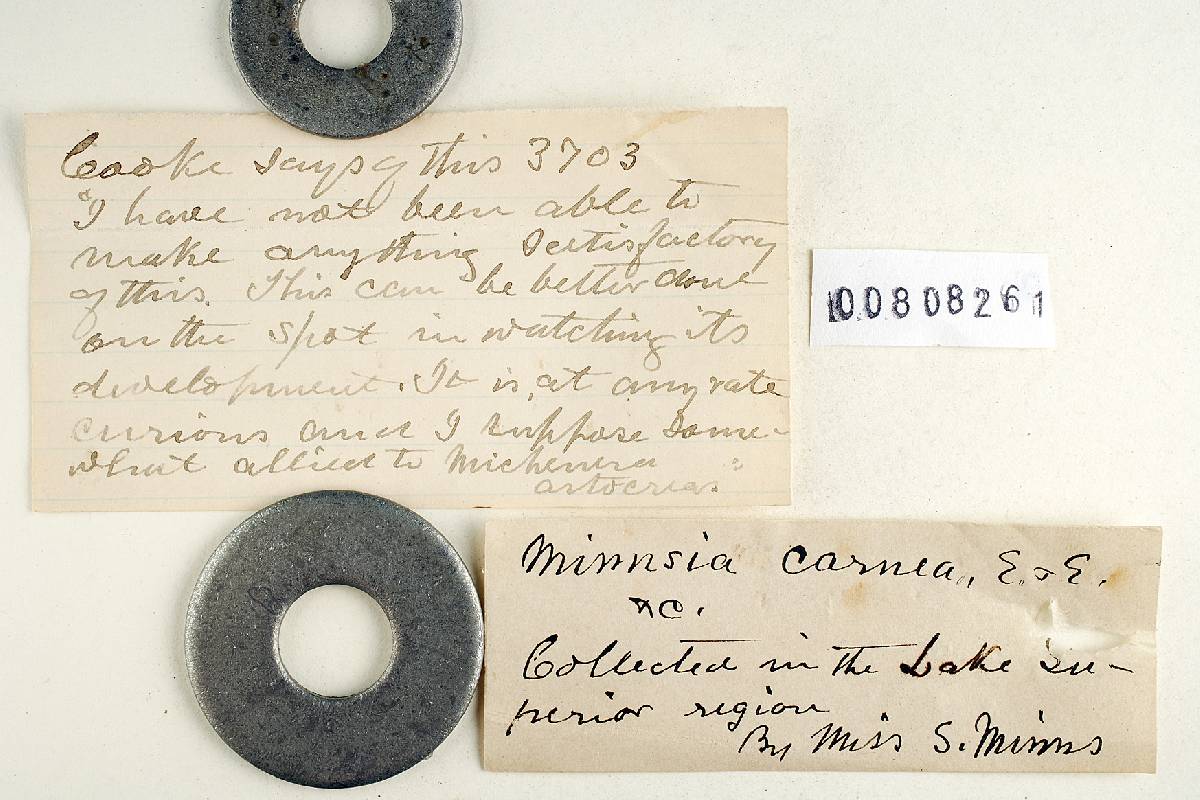 Cooke says of this 3703
"I have not been able to
make anything satisfactory
of this. This can be better done
on the spot in watching its
development. It is, at any rate
curious and I suppose some-
what allied to Michenera
artocreas."
00808261
Mimsia carnea, E. & E.
&c.
Collected in the Lake Su-
perior region
By Miss S. Minns